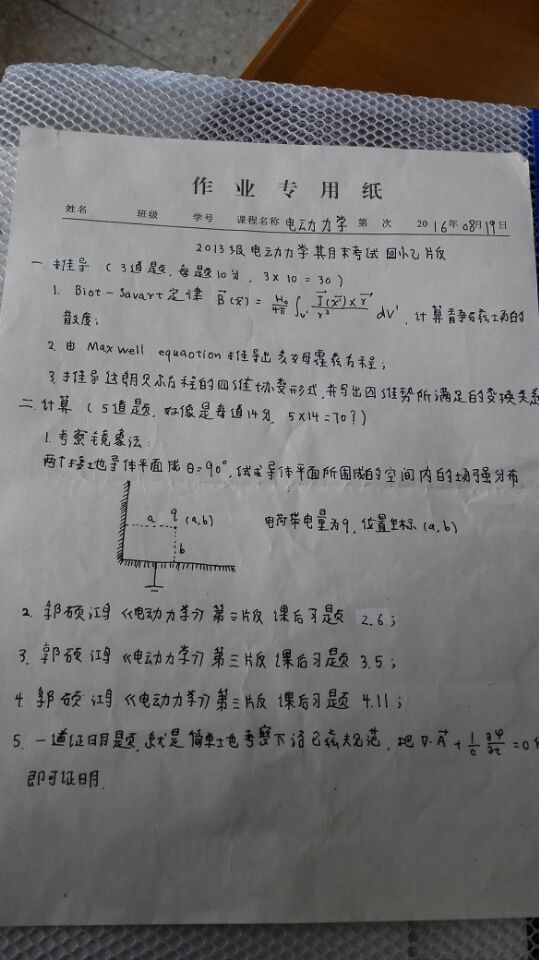 作业专用纸
姓名 班级 学号 课程名称 电动力学 第 次 2016年08月19日
2013级电动力学期月末考试 回忆版
一.推导(3道题,每题10分, 3×10=30)
1. Biot-Savart定律 B⃗(x⃗) = μ₀/4π ∫v' J⃗(x⃗')×r⃗/r³ dV', 计算静磁场的
散度;
2. 由 Maxwell equaotion 推导出亥姆霍兹方程;
3. 推导达朗贝尔方程的四维协变形式,并写出四维势所满足的变换关系
二.计算(5道题,好像是每道14分, 5×14=70?)
1.考察镜象法:
两个接地导体平面成θ=90°,试求导体平面所围成的空间内的场强分布
a q (a,b) b
电荷带电量为q,位置坐标(a,b)
2. 郭硕鸿《电动力学》第三版 课后习题 2.6;
3. 郭硕鸿《电动力学》第三版 课后习题 3.5;
4. 郭硕鸿《电动力学》第三版 课后习题 4.11;
5. 一道证明题,就是简单地考察下洛仑兹规范,把 ∇·A⃗ + 1/c ∂φ/∂t = 0
即可证明.